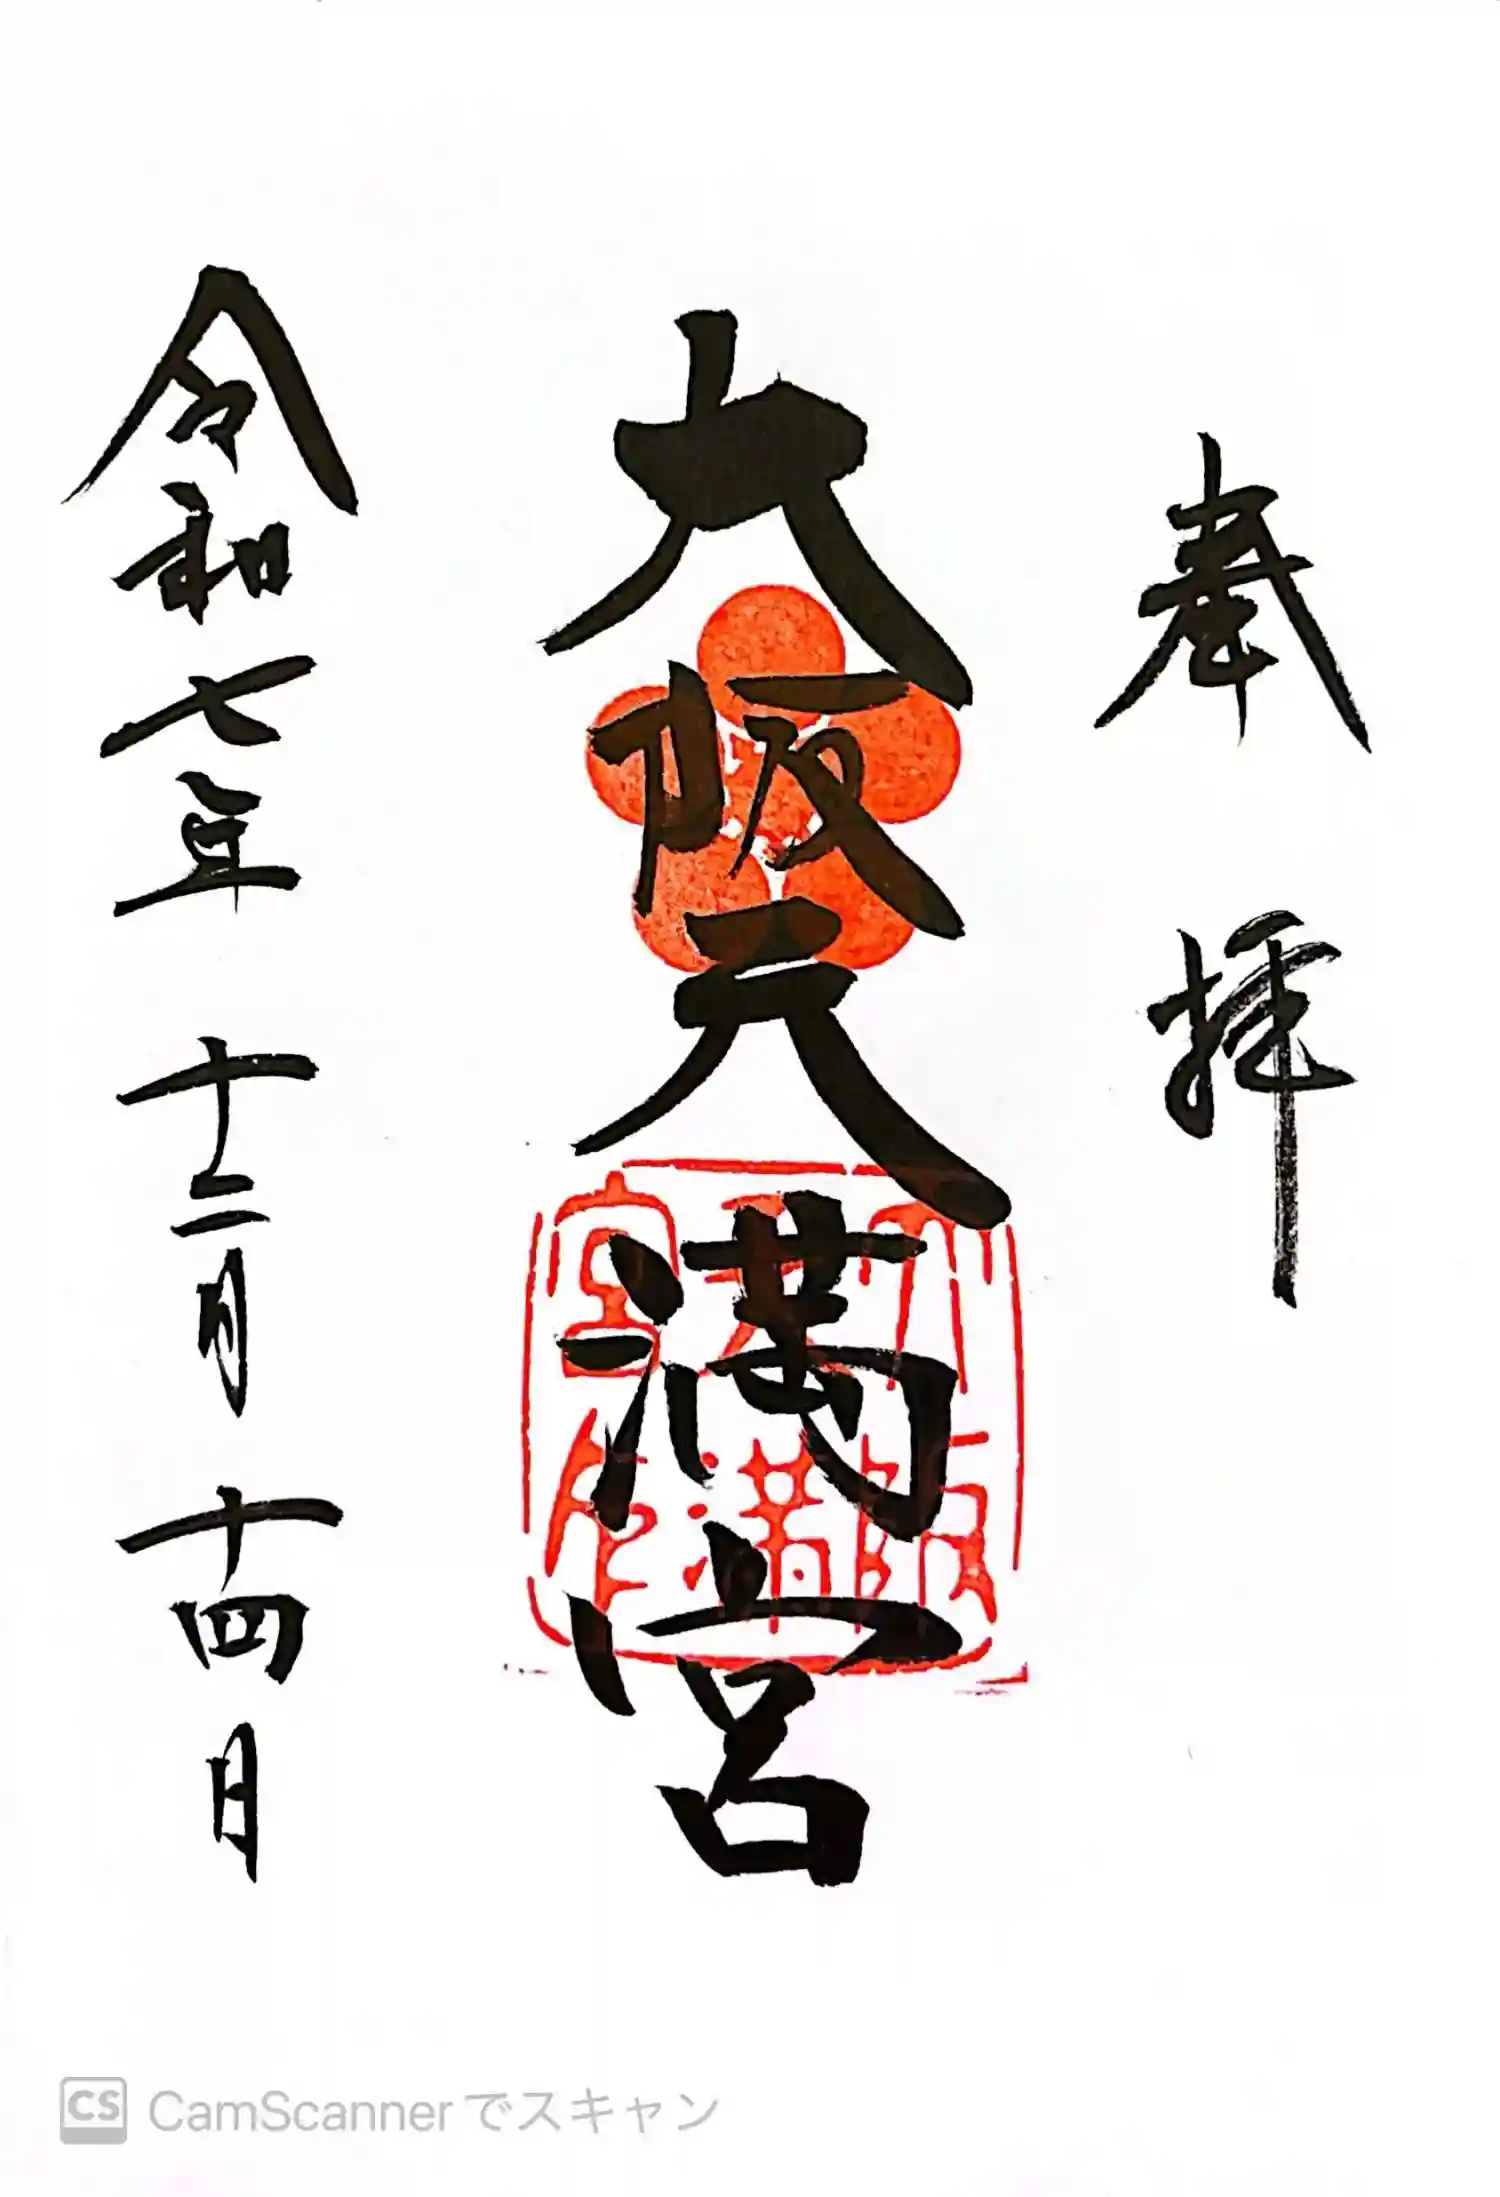 奉拝
大阪天満宮
令和七年 十二月 十四日
大阪天満宮印
CS CamScannerでスキャン